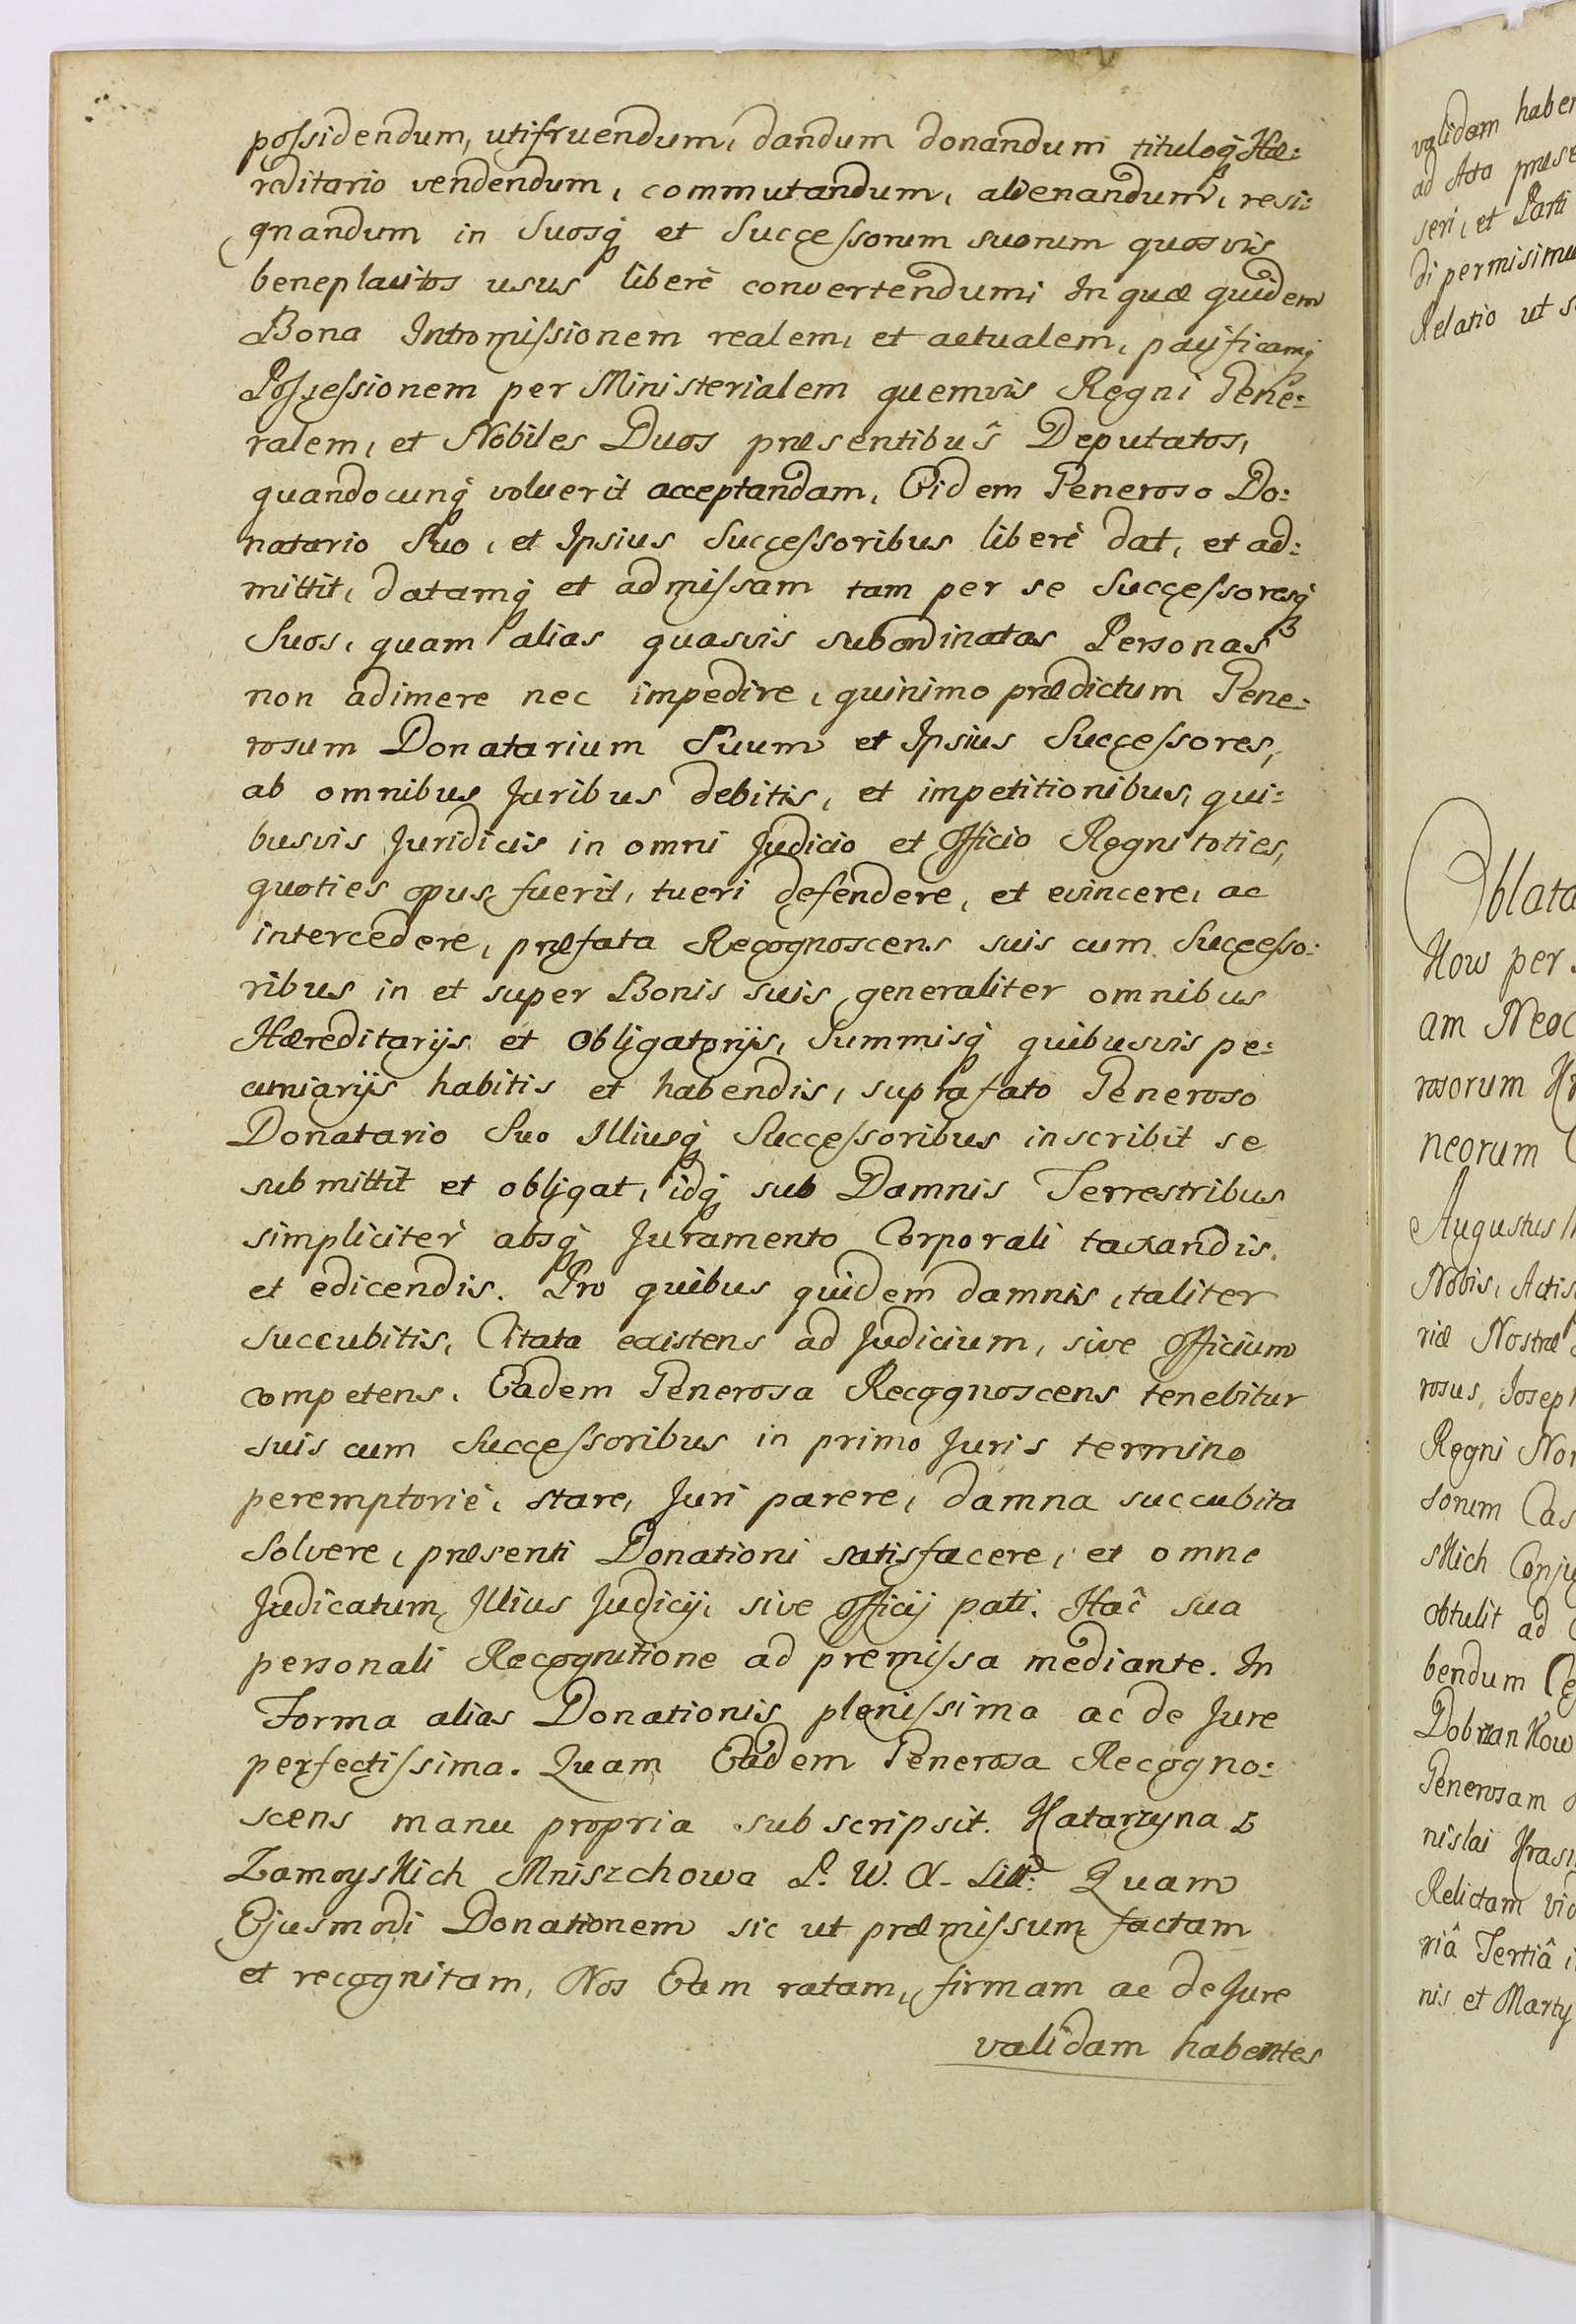 possidendum, utifruendum, dandum donandum tituloq̃ Hæ:
reditario vendendum, commutandum, alienandum, resi:
gnandum in Suosq̃ et Successorum suorum quosvis
beneplacitos usus liberè convertendum, In quæ quidem
Bona Intromissionem realem, et actualem, pacificamq̃
Possessionem per Ministerialem quemvis Regni Gene:
ralem, et Nobiles Duos præsentibus Deputatos,
quandocunq̃ voluerit acceptandam, Eidem Generoso Do:
natario Suo, et Ipsius Successoribus liberè dat, et ad:
mittit, datamq̃ et admissam tam per se Successoresq̃
Suos, quam alias quasvis subordinatas Personas
non adimere nec impedire, quinimo prædictum Gene:
rosum Donatarium Suum et Ipsius Successores,
ab omnibus Juribus debitis, et impetitionibus, qui:
busvis Juridicis in omni Judicio et Officio Regni toties,
quoties opus fuerit, tueri defendere, et evincere, ac
intercedere, præfata Recognoscens suis cum Successo:
ribus in et super Bonis suis generaliter omnibus
Hæreditarijs et Obligatorijs, Summisq̃ quibusvis pe:
cuniarijs habitis et habendis, suprafato Generoso
Donatario Suo Illiusq̃ Successoribus inscribit se
submittit et obligat, idq̃ sub Damnis Terrestribus
simpliciter absq̃ Juramento Corporali taxandis
et edicendis. Pro quibus quidem damnis, taliter
succubitis, Citata existens ad Judicium, sive Officium
competens. Eadem Generosa Recognoscens tenebitur
suis cum Successoribus in primo Juris termino
peremptoriè, stare, Juri parere, damna succubita
Solvere, præsenti Donationi satisfacere, et omne
Judicatum Illius Judicij, sive Officij pati. Hac sua
personali Recognitione ad premissa mediante. In
Forma alias Donationis plenissima ac de Jure
perfectissima. Quam Eadem Generosa Recogno:
scens manu propria subscripsit. Katarzyna z
Zamoyskich Mniszchowa P. W. X. Litt: Quam
Ejusmodi Donationem sic ut præmissum factam
et recognitam, Nos Eam ratam, firmam ac de Jure
validam habentes
validam haben
ad Acta præse
seri, et Parti
di permisimu
Relatio ut s
Oblata
kow per
am Neoc
rosorum Kr
neorum
Augustus
Nobis, Actis
riæ Nostræ
rosus, Joseph
Regni Nor
sorum Cas
skich Conju
obtulit ad
bendum
Dobrzankow
Generosam
nislai Krasi
Relictam vid
riâ Tertiâ i
nis et Marty